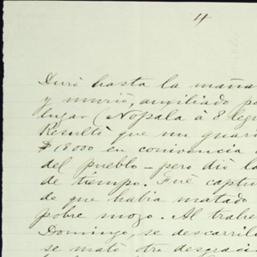 4
Duró hasta la maña
y murió, auxiliado po
lugar (Nopala á 8 leg
Resultó que un guar
$18000 en connivencia
del pueblo – pero dió la
de tiempo. Fué captu
de que habia matado
pobre mozo. Al
Domingo se descarril
se mató otro desgraci